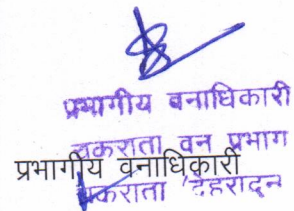 प्रभागीय वनाधिकारी
चकराता वन प्रभाग
प्रभागीय वनाधिकारी
चकराता देहरादून